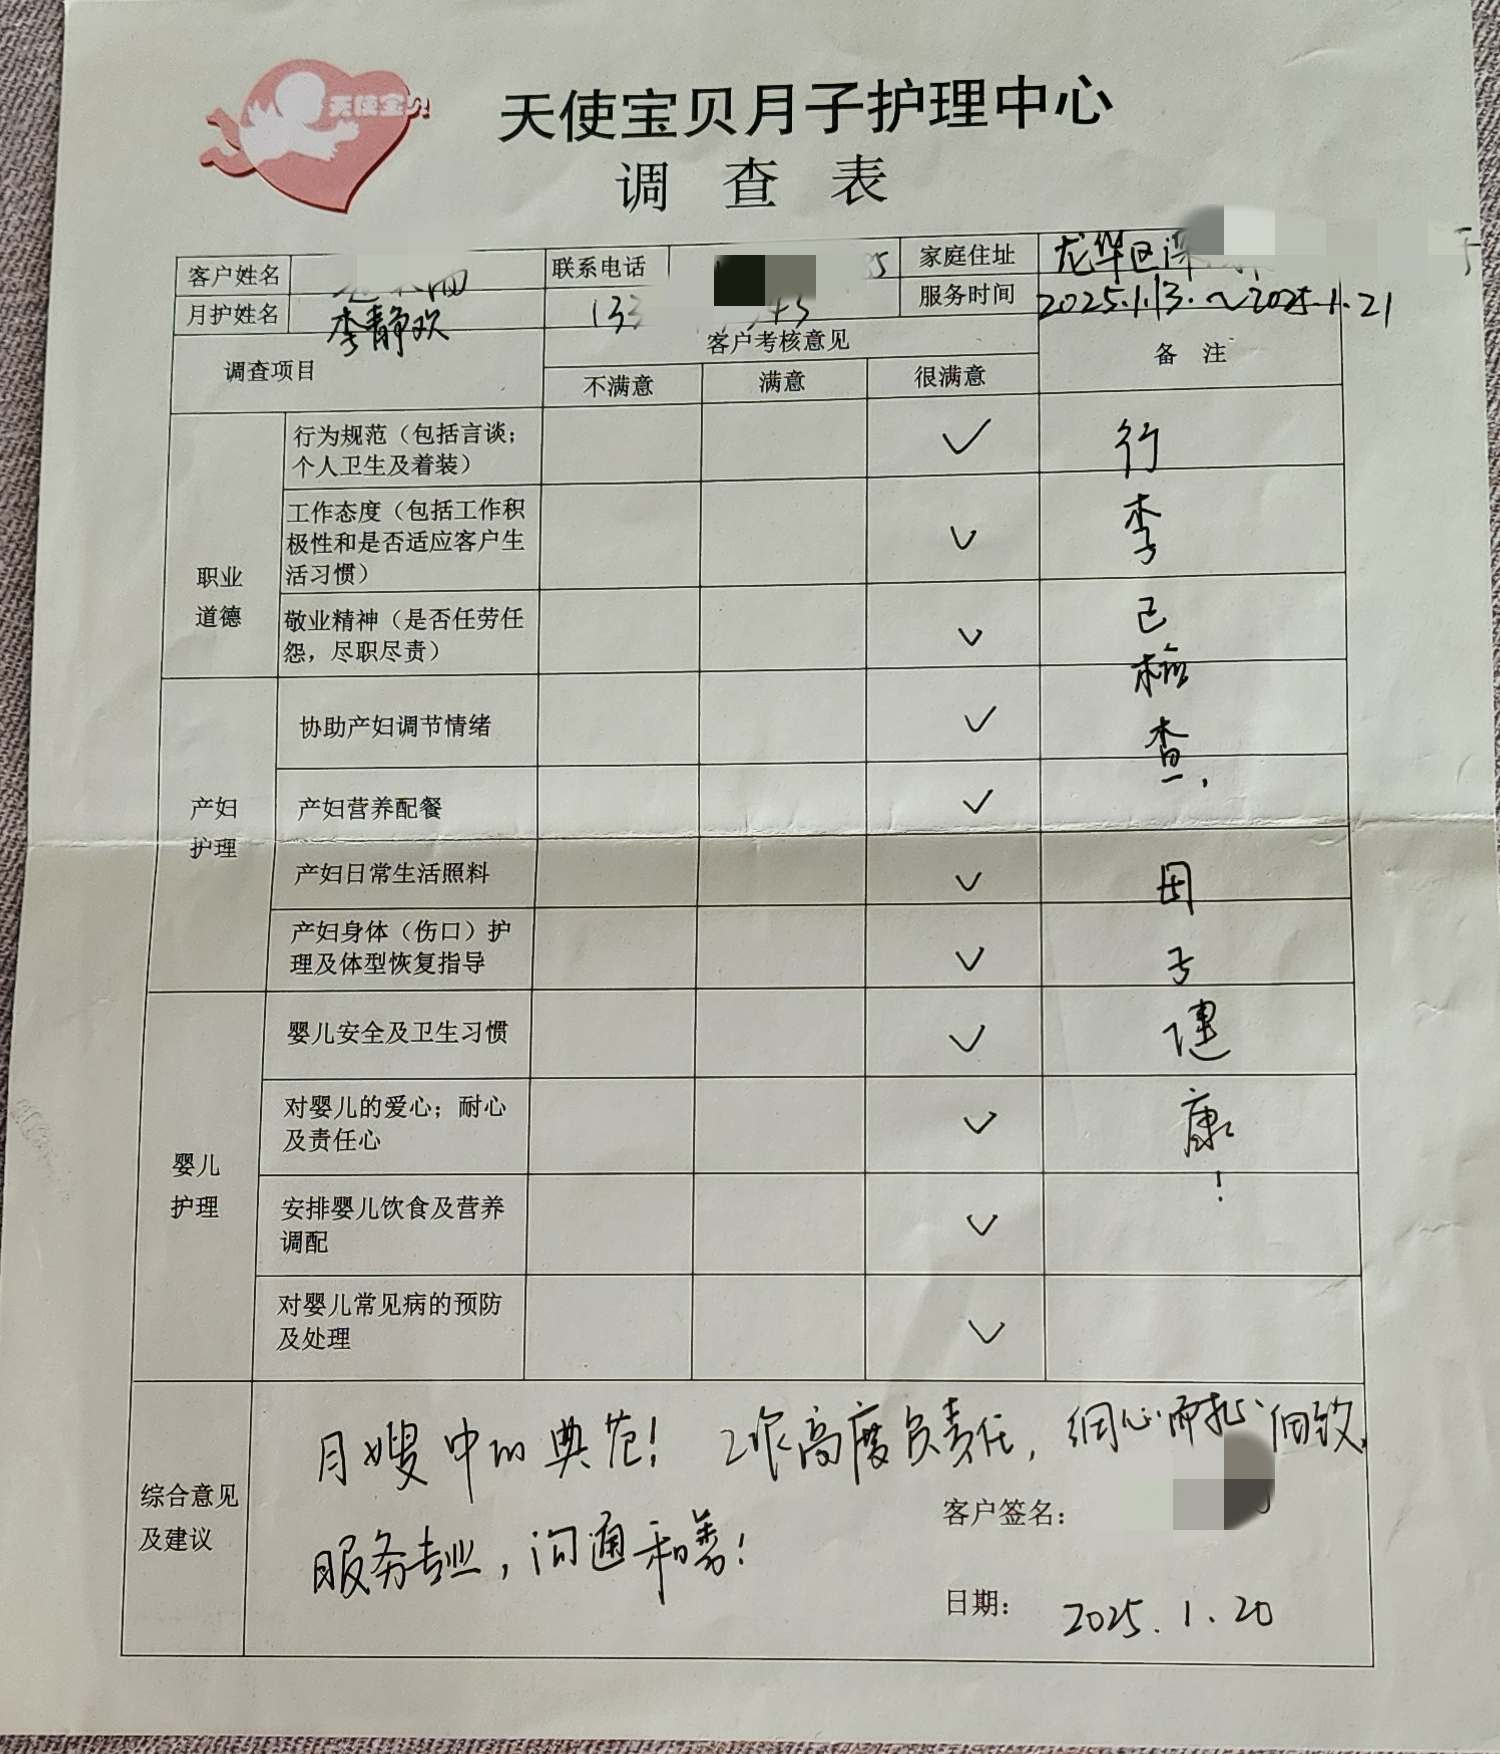 天使宝贝
天使宝贝月子护理中心
调查表
客户姓名 联系电话 85 家庭住址 龙华区深
月护姓名 李静欢 133 服务时间 2025.1.13.~2025.1.21
调查项目 客户考核意见 备注
不满意 满意 很满意
职业道德
行为规范（包括言谈；
个人卫生及着装） ✓ 行
工作态度（包括工作积
极性和是否适应客户生
活习惯） ✓ 李
敬业精神（是否任劳任
怨，尽职尽责） ✓ 已
检
产妇护理
协助产妇调节情绪 ✓ 查，
产妇营养配餐 ✓
产妇日常生活照料 ✓
产妇身体（伤口）护
理及体型恢复指导 ✓ 子
婴儿护理
婴儿安全及卫生习惯 ✓ 健
对婴儿的爱心；耐心
及责任心 ✓ 康！
安排婴儿饮食及营养
调配 ✓
对婴儿常见病的预防
及处理 ✓
综合意见
及建议
月嫂中的典范！工作高度负责任，细心而
服务专业，沟通和善！
客户签名：
日期： 2025.1.20